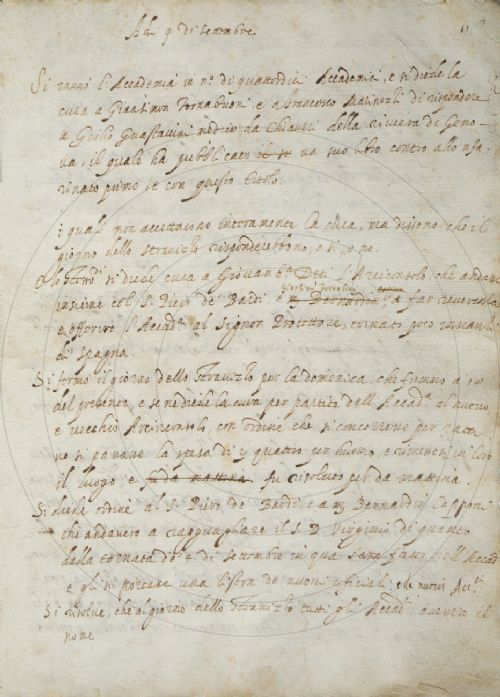 Adi 9 di settembre
Si raunò l'Accademia in n.o di quattordici Accademici, e si diede la
cura a Giansimon Tornabuoni e a Francesco Marinozzi di rispondere
a Giulio Guastavini medico da Chiavari della riviera di Geno-
va, il quale ha pubblicato un suo libro contro allo nfa-
rinato primo se con questo titolo.
i quali non accettarono interamente la cura, ma dissono che il
giorno dello stravizzo risponderebbono, e si, e no.
si diede cura a Giovamb.a Deti l'Arciconsolo che andasse
insieme col S. Piero de Bardi e a far reverenza
e offerire l'Accad.a al Signor Protettore, tornato poco innanzi
di Spagna.
Si fermò il giorno dello Stravizzo per la domenica, che fummo a
del presente, e se ne diede la cura per parte dell'Accad.a al nuovo
e vecchio Arciconsoli, con ordine che si concorresse per
ne si passasse la spesa di quattro per huomo, e rimessesi in loro
il luogo e fu da mattina. fu risoluto per da mattina.
Si diede ordine al S. Piero de Bardi e a Bernardin Capponi
che andassero a ragguagliare il S. D. Virginio di quanto
dalla tornata de 4 di settembre in qua dell'Accad
e gli si portasse una listra de nuovi ufficiali e de nuovi Acc.i
Si risolve, che al giorno dello Stravizzo tutti gli Accad.i il
nome